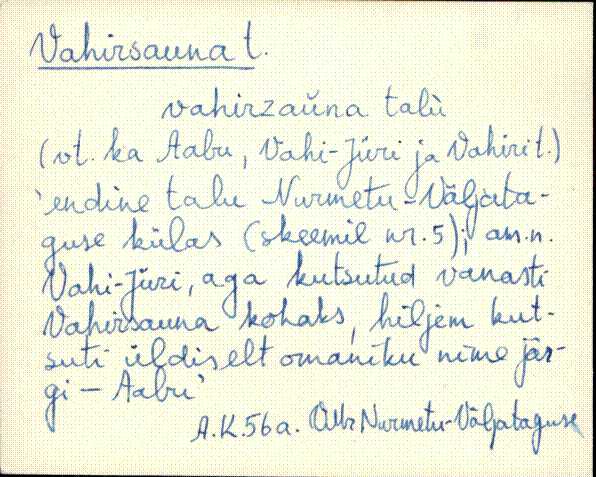 Vahirsauna t.
vahirzaŭna talù
(vt. ka Aabu, Vahi-Jüri ja Vahiri t.)
'endine talu Nurmetu-Väljata-
guse külas (skeemil nr. 5); am.n.
Vahi-Jüri, aga kutsutud vanasti
Vahirsauna kohaks, hiljem kut-
suti üldiselt omaniku nime jär-
gi – Aabu'
A.K. 56a. Nurmetu-Väljataguse